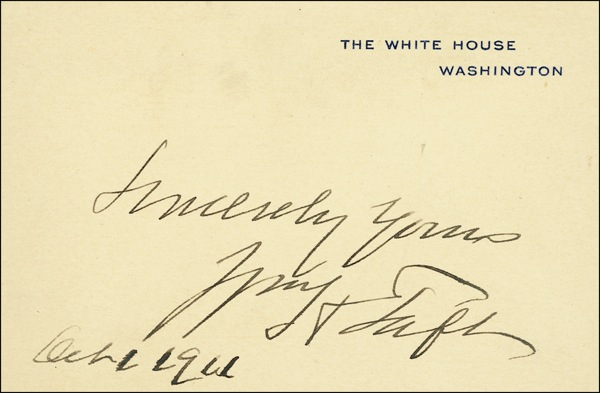 THE WHITE HOUSE
WASHINGTON
Sincerely Yours
Wm H Taft
Oct 1 1911